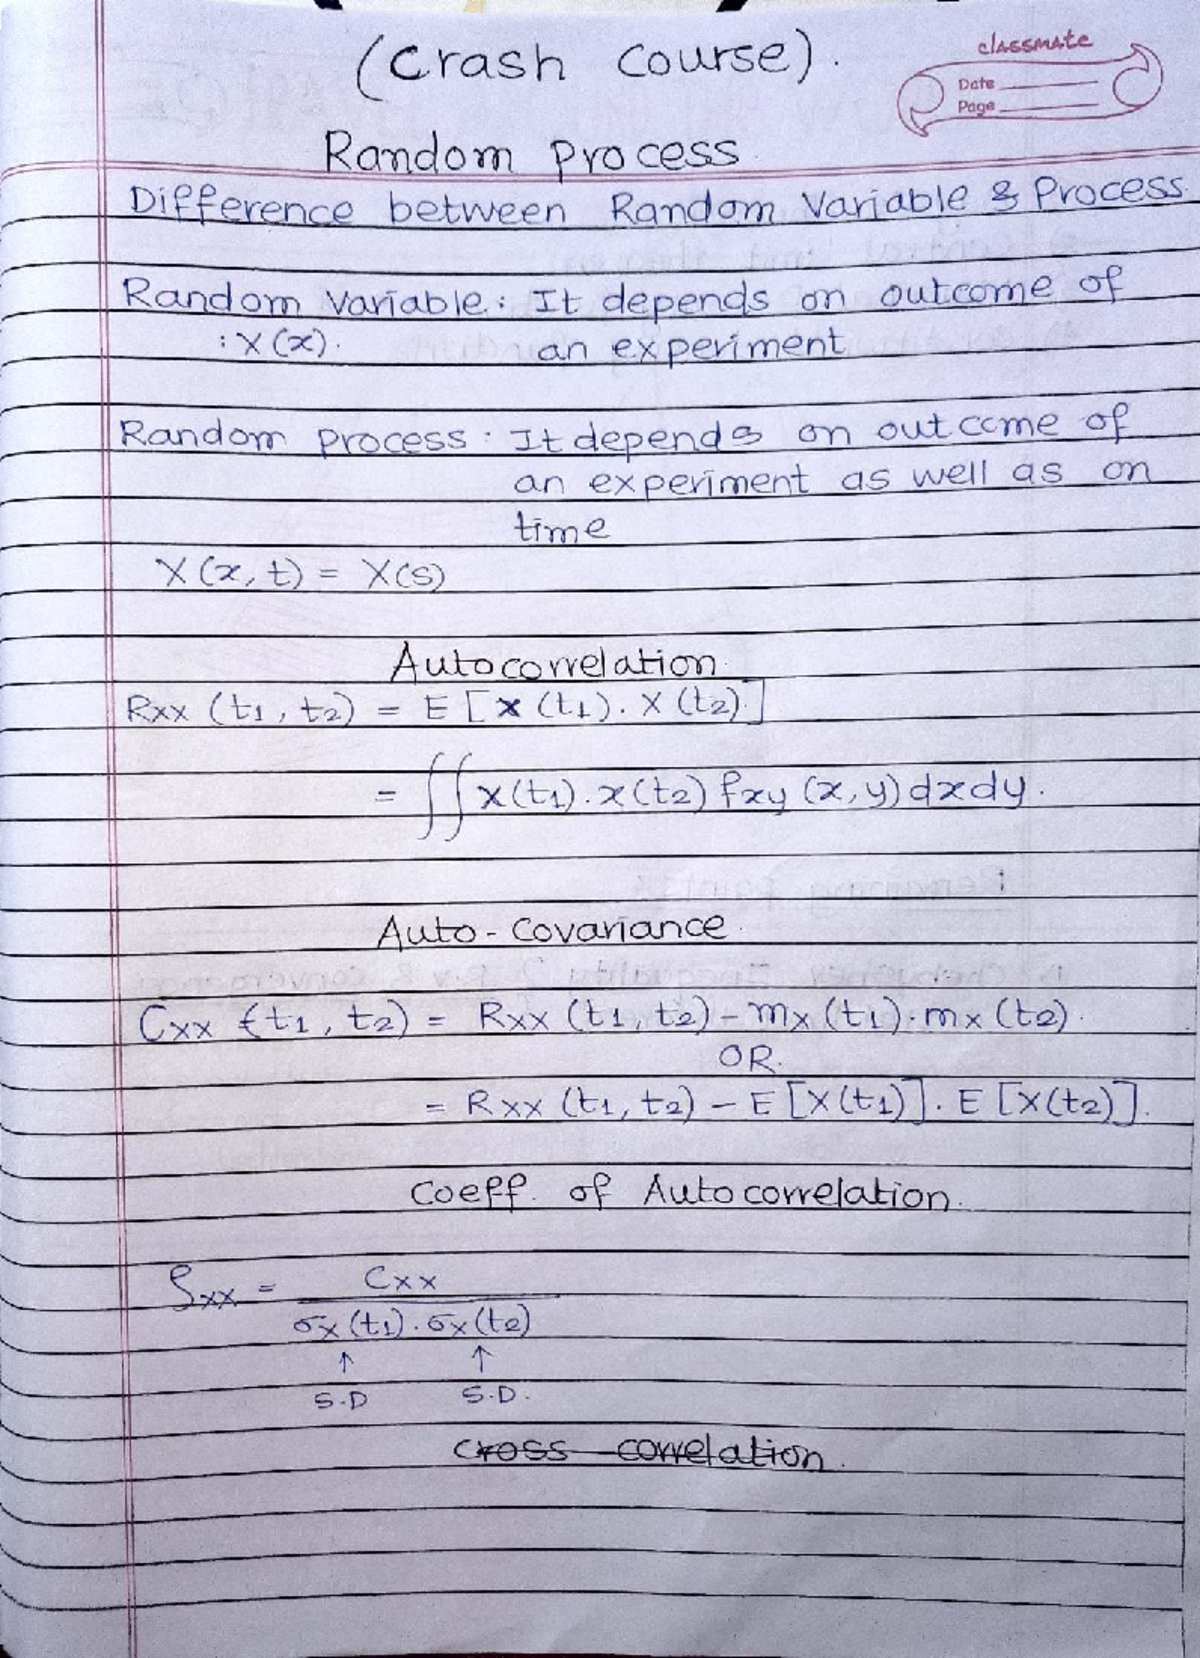 (Crash Course).
classmate
Date
Page
Random Process
Difference between Random Variable & Process.
Random Variable : It depends on outcome of
: X(x). an experiment
Random Process : It depends on outcome of
an experiment as well as on
time
X(x, t) = X(s)
Autocorrelation
Rxx (t1, t2) = E [X (t1). X (t2).]
= ∬ x(t1). x(t2) fxy (x, y) dx dy.
Auto - Covariance
Cxx (t1, t2) = Rxx (t1, t2) - mx (t1). mx (t2).
OR.
= Rxx (t1, t2) - E [X(t1)]. E [X(t2)].
Coeff. of Autocorrelation.
ρxx = Cxx
σx (t1). σx (t2)
↑ ↑
S.D S.D.
Cross correlation.